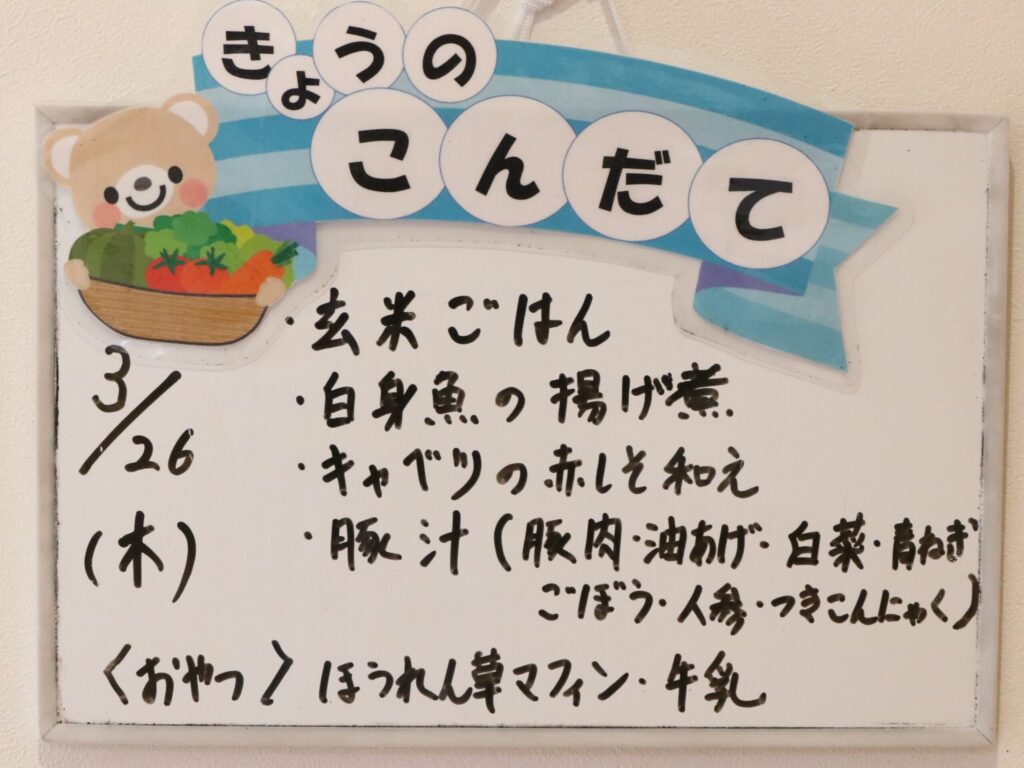 きょうの
こんだて
・玄米ごはん
3/26
・白身魚の揚げ煮
・キャベツの赤しそ和え
(木)
・豚汁(豚肉・油あげ・白菜・青ねぎ
ごぼう・人参・つきこんにゃく)
〈おやつ〉ほうれん草マフィン・牛乳